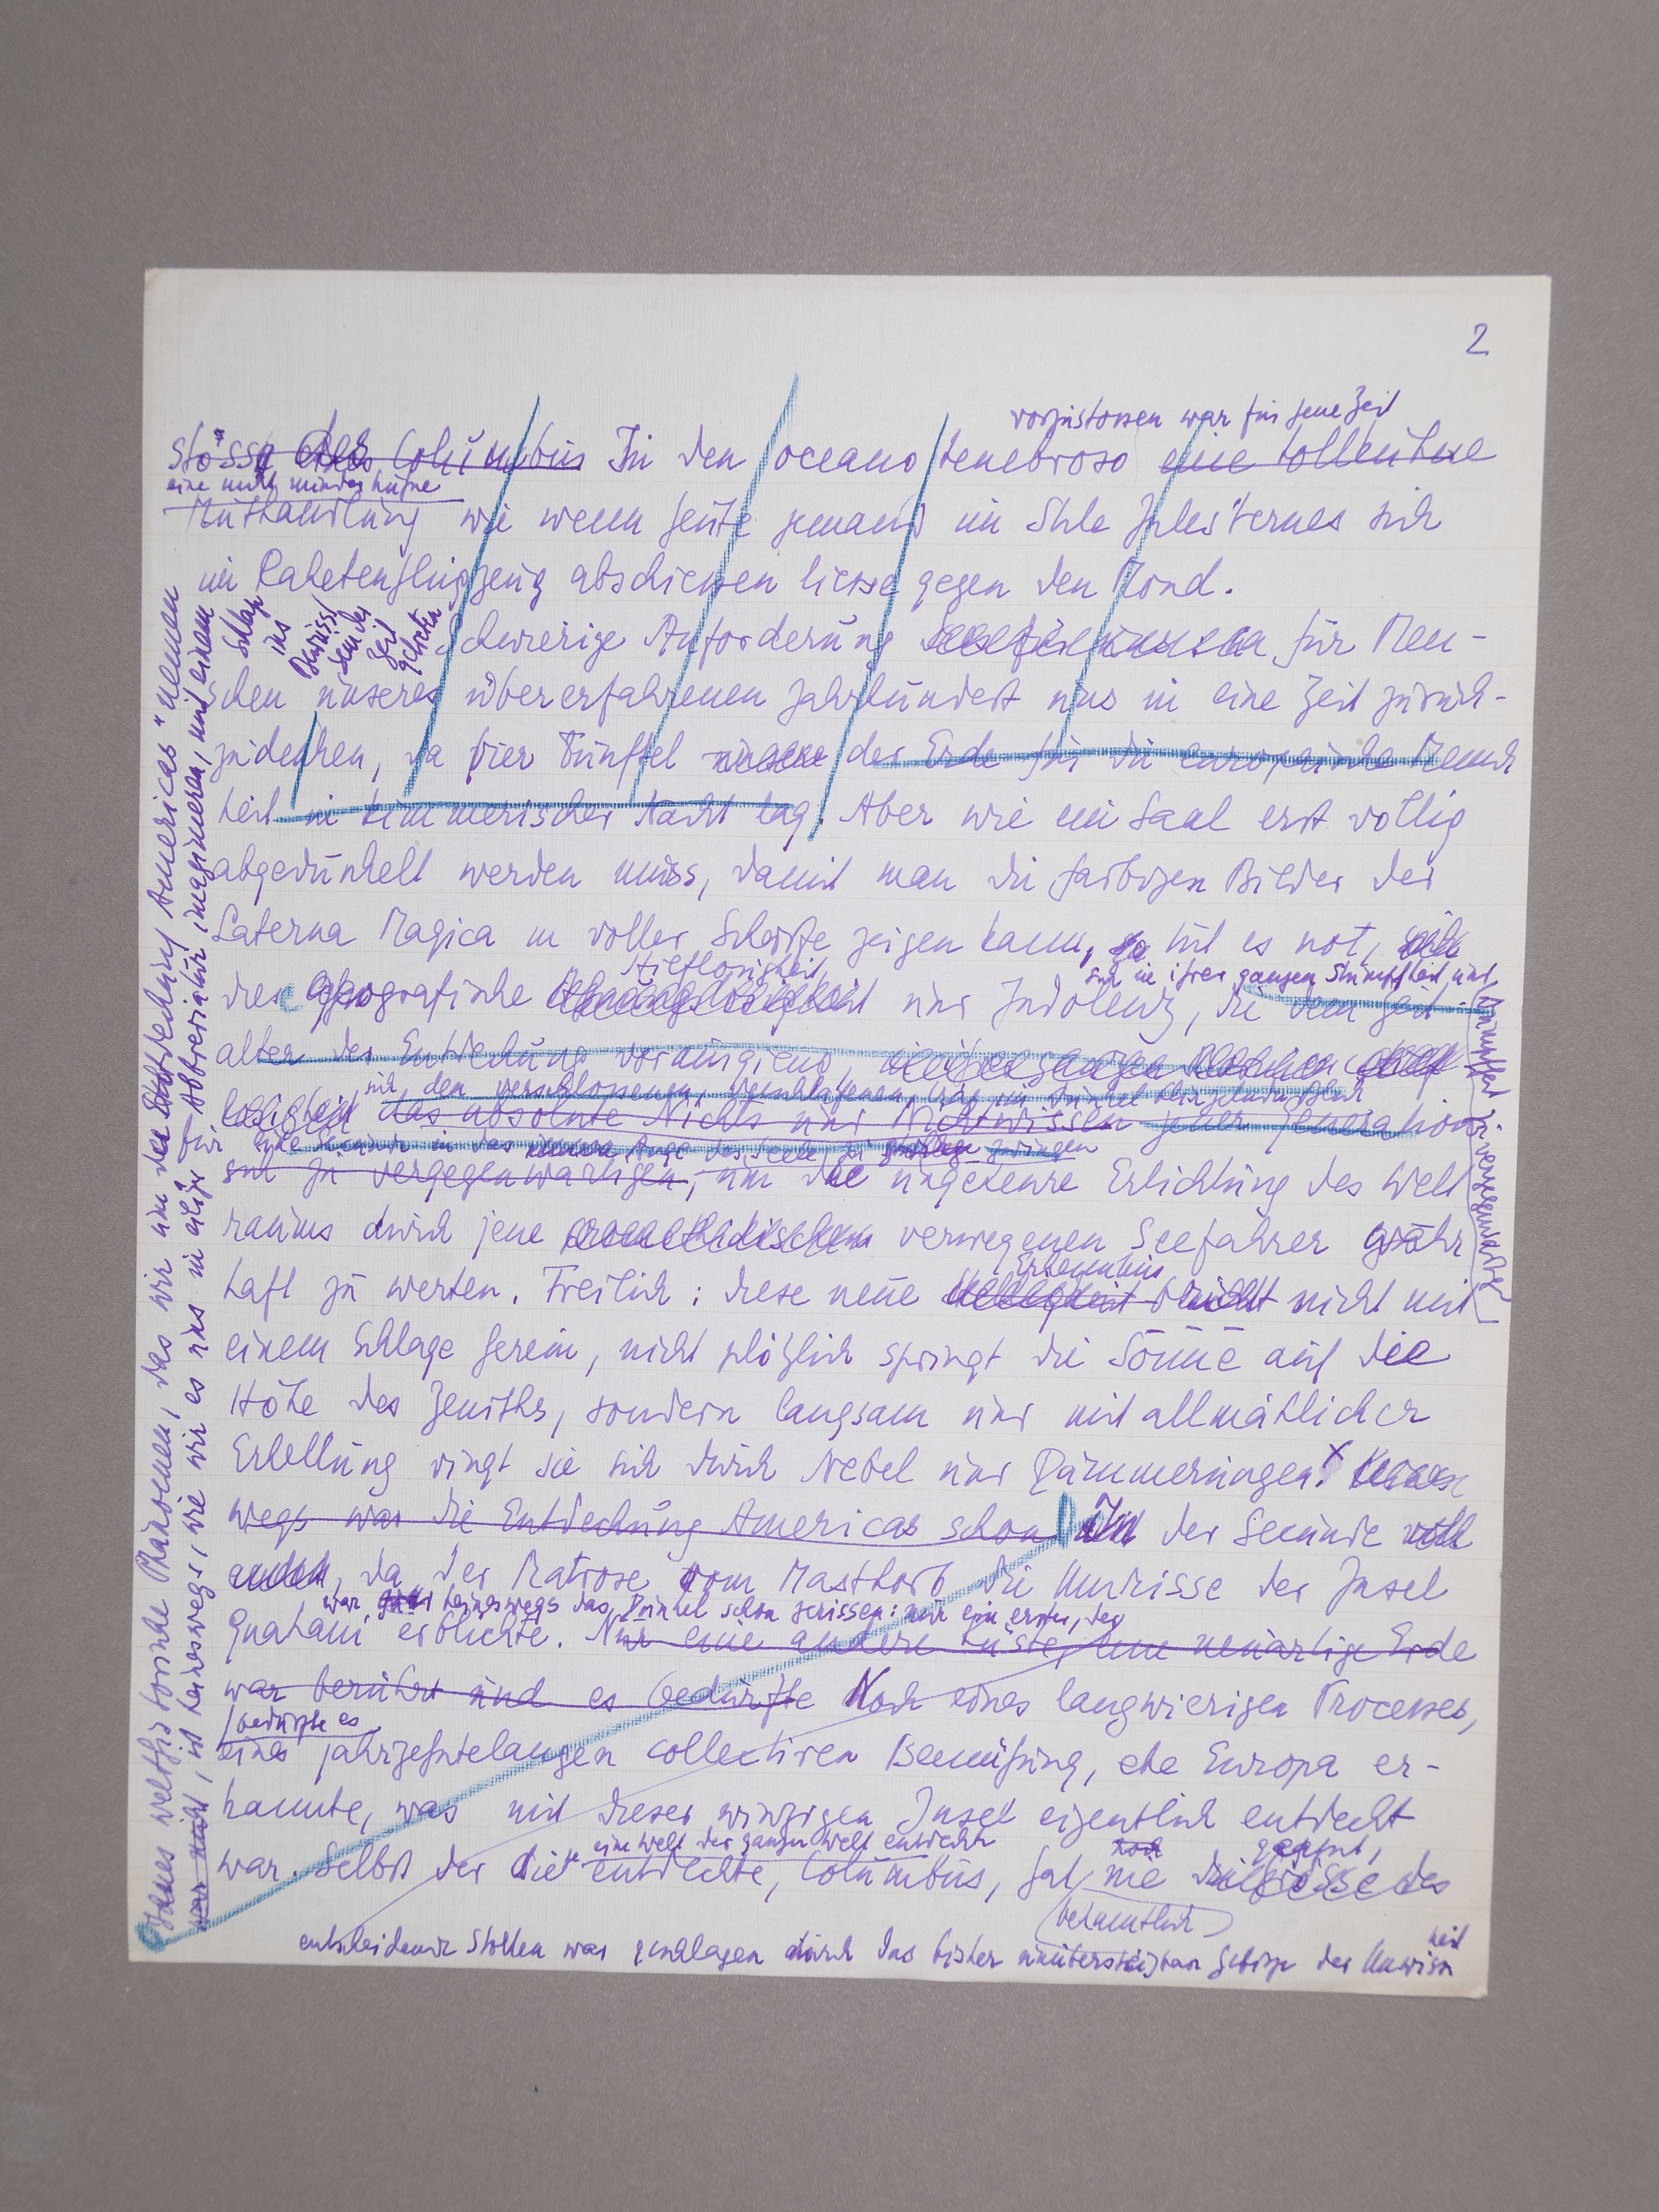 2
vorzustossen war für jene Zeit
stösse des Columbus In den oceano tenebroso eine tollkühne
eine nicht minder kühne
Muthandlung wie wenn heute jemand im Stile Jules Vernes sich
im Raketenflugzeug abschiessen liesse gegen den Mond.
Schwierige Anforderung für Men-
schen unseres übererfahrenen Jahrhundert uns in eine Zeit zurück-
zudenken, da vier Fünftel unserer der Erde für die europäische Mensch
heit in kimmerischer Nacht lag. Aber wie ein Saal erst völlig
abgedunkelt werden muss, damit man die farbigen Bilder der
Laterna Magica in voller Schärfe zeigen kann, so tut es not,
sich in ihrer ganzen Stumpfheit und
die geografische und Indolenz, die dem Zeit-
alter der Entdeckung vorausgieng,
Dumpfheit zu vergegenwärtigen
sich den verschlossenen, verschlagenen,
das absolute Nichts und Nichtwissen jener Generation
eine Secunde in das innere Auge der Seele zu zwingen
sich zu vergegenwärtigen, um die ungeheure Erlichtung des Welt
raums durch jene prometheischen verwegenen Seefahrer wahr
haft zu werten. Freilich: diese neue
Erkenntnis
Helligkeit bricht nicht mit
einem Schlage herein, nicht plötzlich springt die Sonne auf die
Höhe des Zeniths, sondern langsam und mit allmählicher
Erhellung ringt sie sich durch Nebel und Dämmerungen. Keines
wegs war die Entdeckung Americas schon In der Secunde
da der Matrose vom Mastkorb die Umrisse der Insel
war keineswegs das Dunkel schon zerissen: nur ein erster, der
Guahani erblickte. Nur eine andere Küste, eine neuartige Erde
war berührt und es bedurfte Noch eines langwierigen Processes,
bedurfte es
eines jahrzehntelangen collectiven Bemühung, ehe Europa er-
kannte, was mit dieser winzigen Insel eigentlich entdeckt
eine Welt der ganzen Welt entdeckte
war. Selbst der die entdeckte, Columbus, hat nie die Grösse des
noch
geahnt,
bekanntlich
entscheidender Stollen war geschlagen durch das bisher unübersteigbare Gebirge der Unwissen
heit
Jenes welthistorische Phänomen, das wir nun die Entdeckung Americas" nennen
war nicht, ist keineswegs, wie wir es uns in eiliger Abbreviatur imaginieren, mit einem
Schlag
ins
Bewusst
sein der
Zeit
getreten